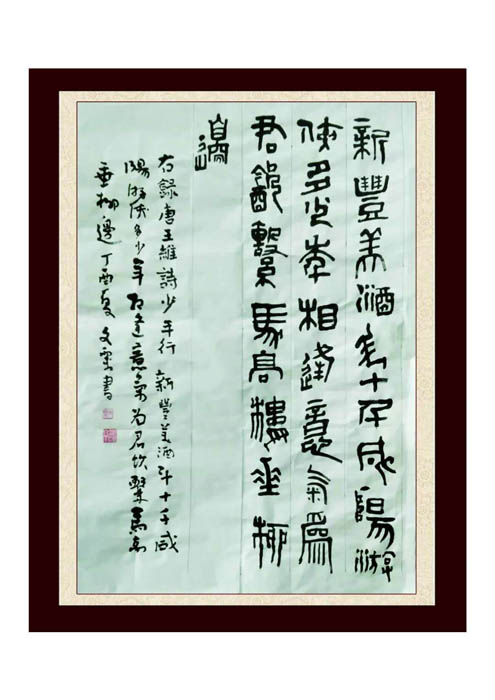 新豐美酒斗十千咸陽游
俠多少年相逢意氣爲
君飲繫馬高樓垂柳
邊
右錄唐王維詩少年行 新豐美酒斗十千咸
陽游俠多少年相逢意氣为君饮繫馬高
垂柳邊丁酉夏文 書